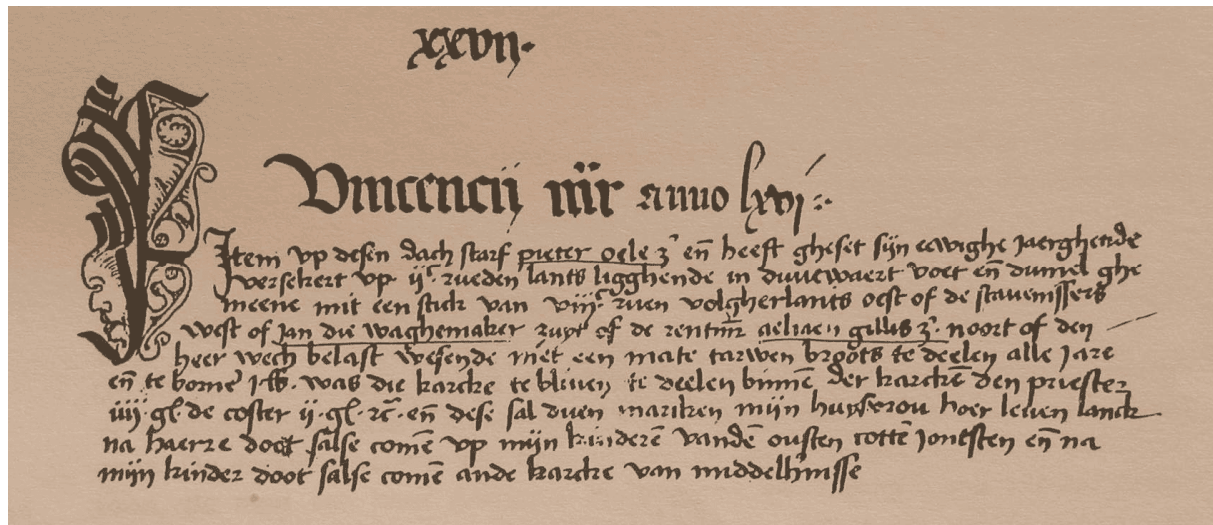 xxvij.
Vincencij mr̄ anno lxvj
Item vp desen dach starf pieter oele z' eñ heeft gheset sijn eewighe jaerghetide
versekert vp ijc rueden lants ligghende in duvewaert voet eñ dumel ghe
meene mit een stuck van viijc ruen volgherlants oest of de stavenissers
west of jan die waghemaker zuyt of de rentmr̄ aeliaen gillis z' noort of den
heer wech belast wesende met een mate tarwen broots te deelen alle jare
eñ te borne was die karcke te bliven te deelen binnē der karckē den priester
iiij gl. de coster ij gl. eñ dese sal duen mariken mijn huysvrou hoer leven lanck
na haerre doot salse comē vp mijn kinderē vandē outsten totten joncsten eñ na
mijn kinder doot salse comē ande karcke van middelh'nisse